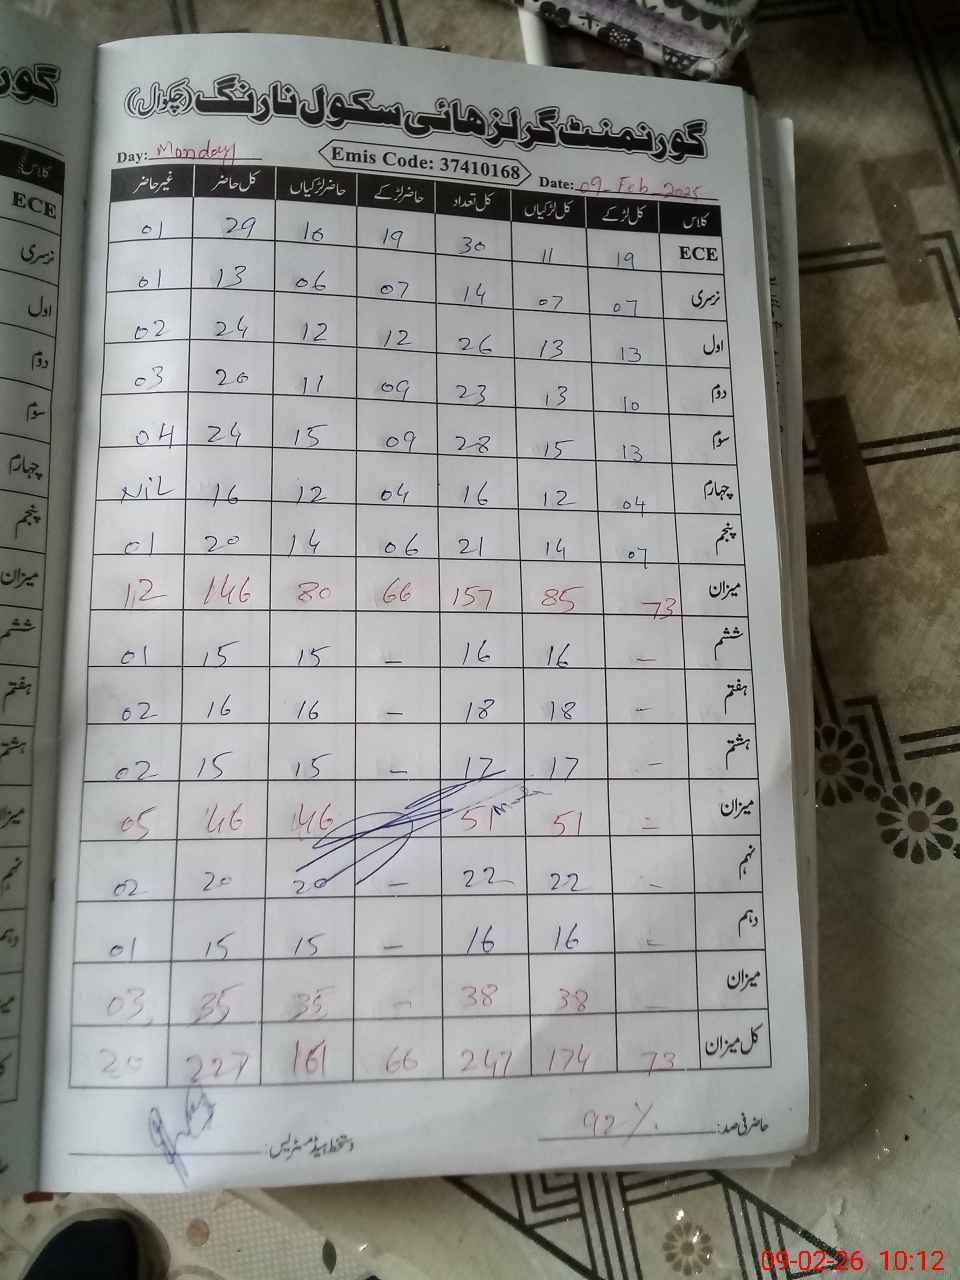 گورنمنٹ گرلز ہائی سکول نارنگ (چکوال)
Day: Monday
Emis Code: 37410168
Date: 09-Feb-2025
کلاس کل لڑکے کل لڑکیاں کل تعداد حاضر لڑکے حاضر لڑکیاں کل حاضر غیر حاضر
ECE 19 11 30 19 10 29 01
نرسری 07 07 14 07 06 13 01
اول 13 13 26 12 12 24 02
دوم 10 13 23 09 11 20 03
سوم 13 15 28 09 15 24 04
چہارم 04 12 16 04 12 16 Nil
پنجم 07 14 21 06 14 20 01
میزان 73 85 157 66 80 146 12
ششم - 16 16 - 15 15 01
ہفتم - 18 18 - 16 16 02
ہشتم - 17 17 - 15 15 02
میزان - 51 51 46 46 05
نہم - 22 22 - 20 20 02
دہم - 16 16 - 15 15 01
میزان - 38 38 - 35 35 03
کل میزان 73 174 247 66 161 227 20
حاضر فی صد: 92 %
دستخط ہیڈمسٹریس:
گور
کلاس
ECE
نرسری
اول
دوم
سوم
چہارم
پنجم
میزان
ششم
ہفتم
ہشتم
میزان
نہم
09-02-26 10:12